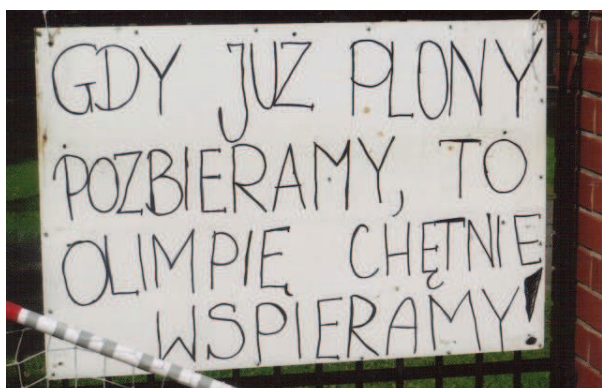 GDY JUŻ PLONY
POZBIERAMY, TO
OLIMPIĘ CHĘTNIE
WSPIERAMY!